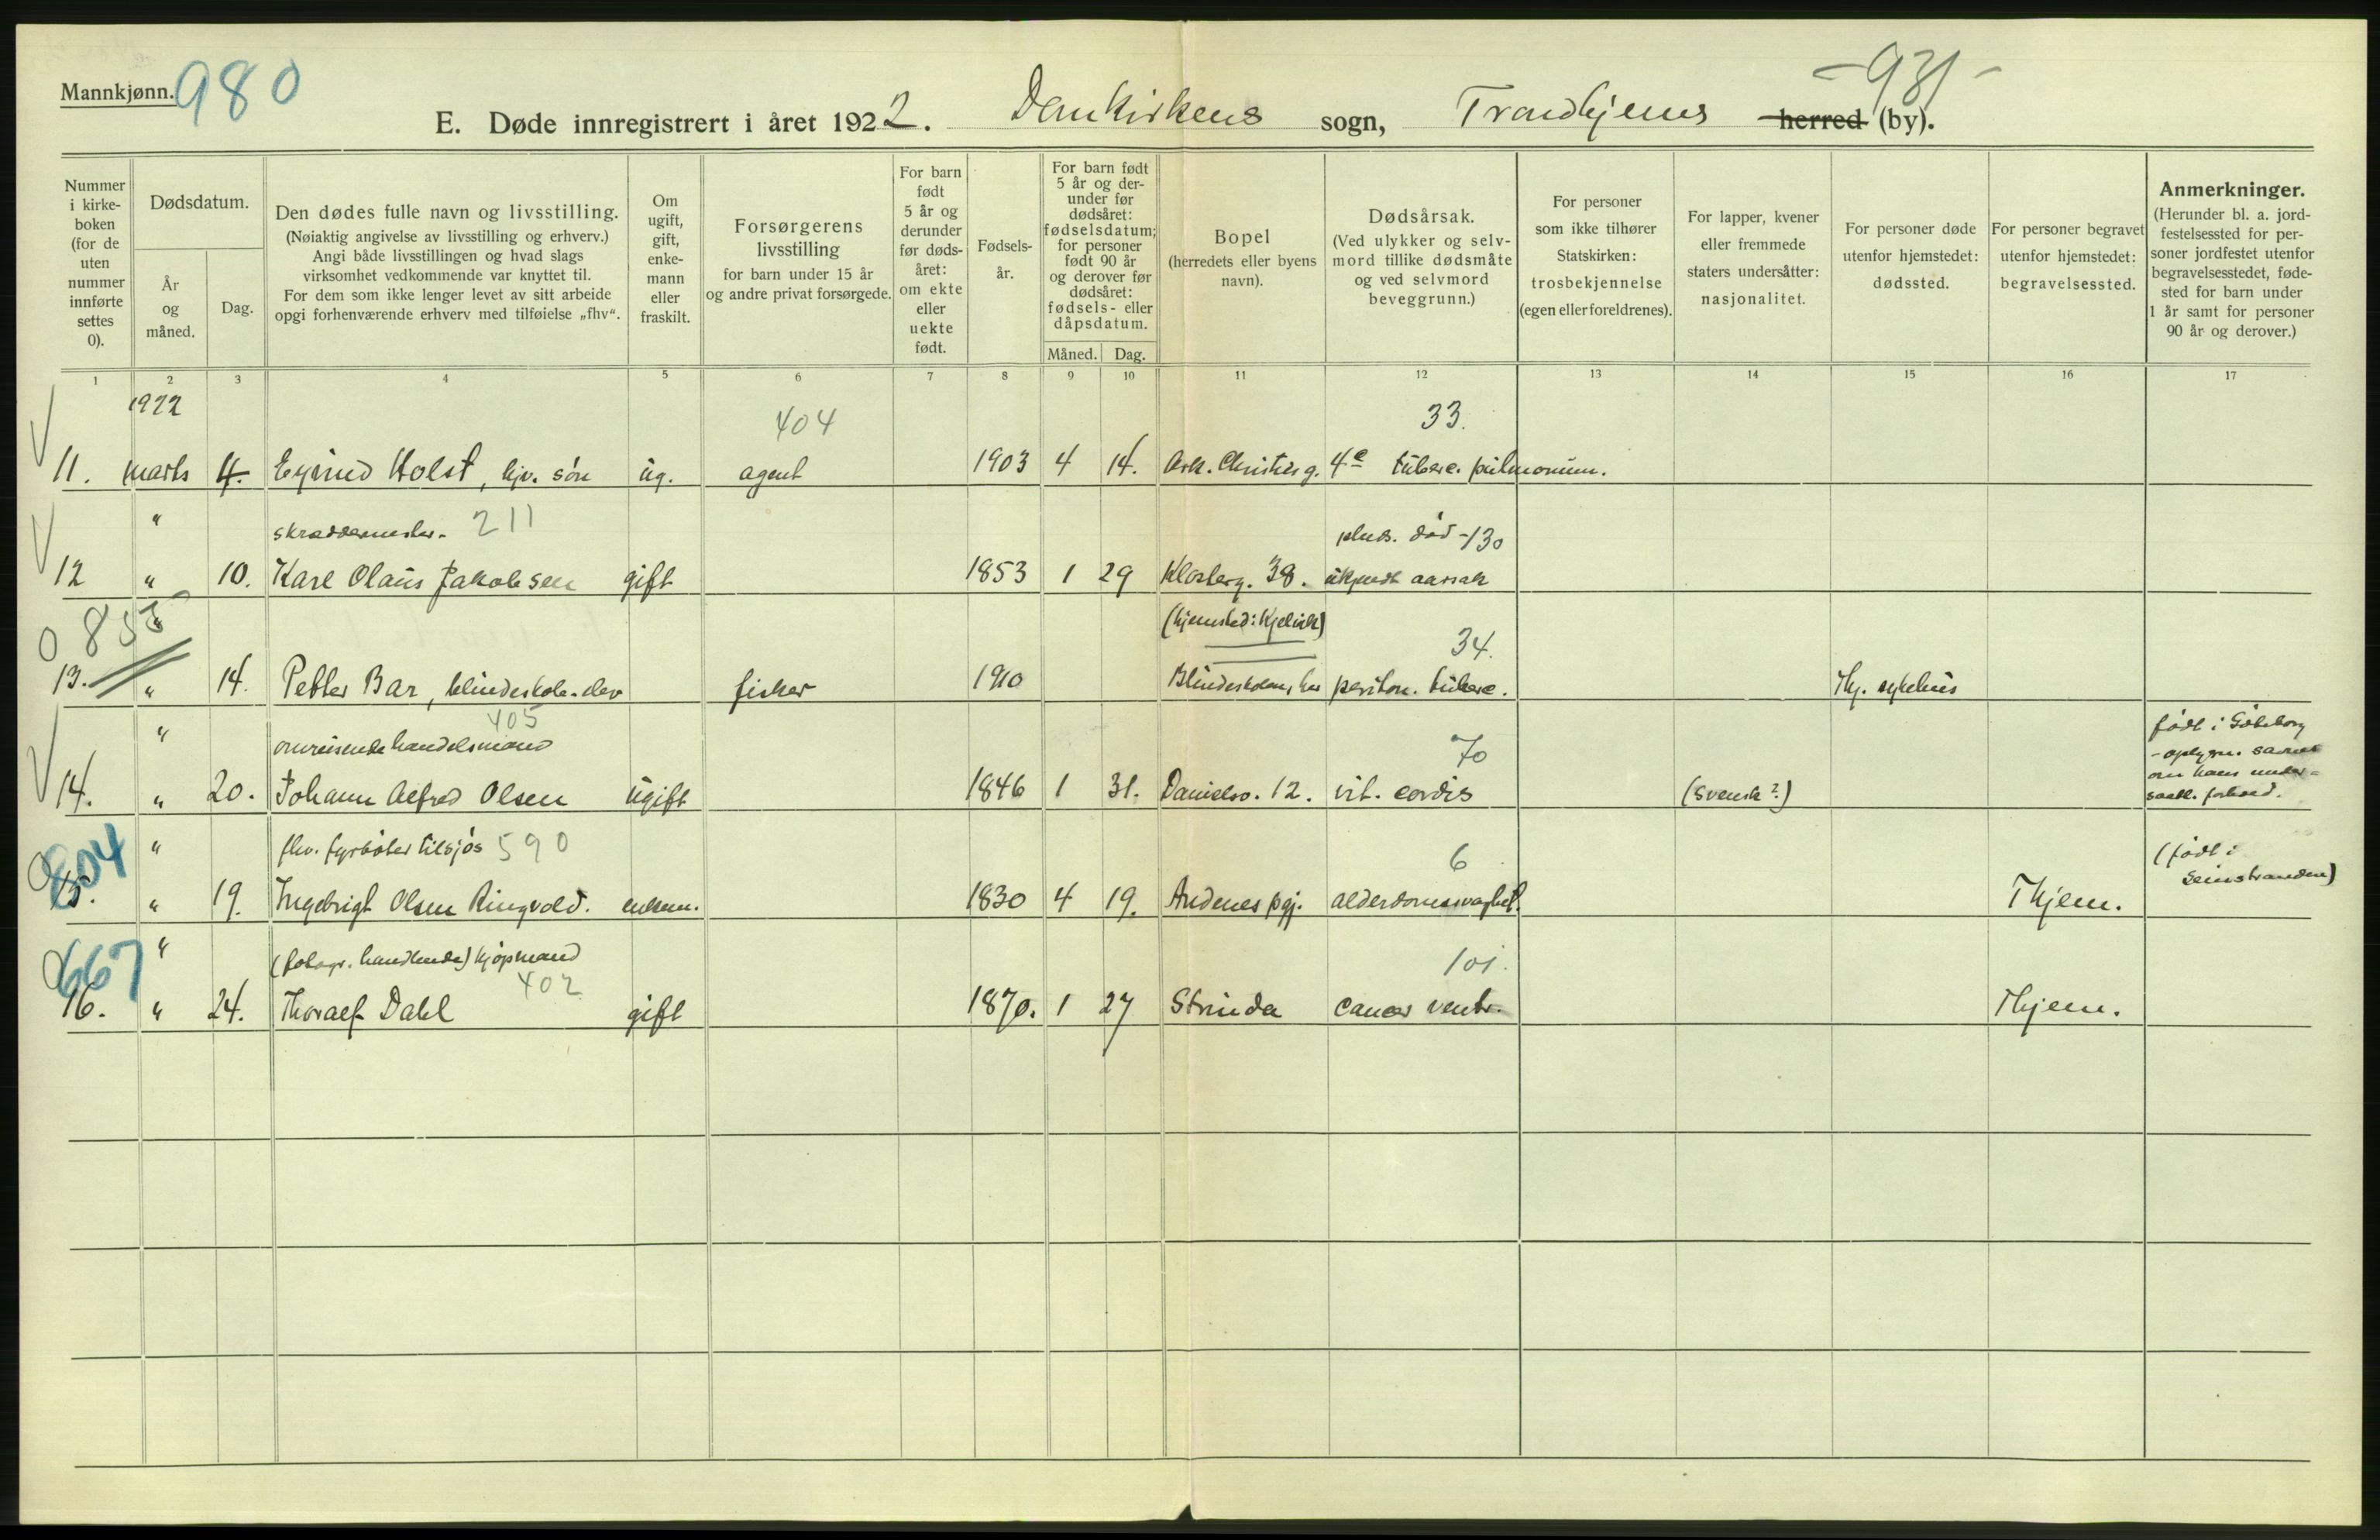 Mannkjønn. 980
-931-
E. Døde innregistrert i året 1922. Domkirkens sogn, Trondhjems herred (by).
Nummer i kirke-boken (for de uten nummer innførte settes 0).
Dødsdatum.
År og måned.
Dag.
Den dødes fulle navn og livsstilling.
(Nøiaktig angivelse av livsstilling og erhverv.)
Angi både livsstillingen og hvad slags
virksomhet vedkommende var knyttet til.
For dem som ikke lenger levet av sitt arbeide
opgi forhenværende erhverv med tilføielse „fhv“.
Om ugift, gift, enke-mann eller fraskilt.
Forsørgerens
livsstilling
for barn under 15 år
og andre privat forsørgede.
For barn født 5 år og derunder før døds-året: om ekte eller uekte født.
Fødsels-år.
For barn født 5 år og der-under før dødsåret: fødselsdatum; for personer født 90 år og derover før dødsåret: fødsels- eller dåpsdatum.
Måned. Dag.
Bopel
(herredets eller byens
navn).
Dødsårsak.
(Ved ulykker og selv-
mord tillike dødsmåte
og ved selvmord
beveggrunn.)
For personer
som ikke tilhører
Statskirken:
trosbekjennelse
(egen eller foreldrenes).
For lapper, kvener
eller fremmede
staters undersåtter:
nasjonalitet.
For personer døde
utenfor hjemstedet:
dødssted.
For personer begravet
utenfor hjemstedet:
begravelsessted.
Anmerkninger.
(Herunder bl. a. jord-
festelsessted for per-
soner jordfestet utenfor
begravelsesstedet, føde-
sted for barn under
1 år samt for personer
90 år og derover.)
1 2 3 4 5 6 7 8 9 10 11 12 13 14 15 16 17
1922
404 33.
11. marts 4. Eyvind Holst, hjv. søn ug. agent 1903 4 14. Ark. Christies g. 4e tuberc. pulmonum.
" skræddermester. 211 pluds. død -130
12 " 10. Karl Olaus Jakobsen gift 1853 1 29 Klosterg. 38. ukjendt aarsak
0 855 " (hjemsted: Kjelvik) 34.
13. " 14. Petter Bar, blindeskole-elev fisker 1910 Blindeskolen, her periton. tuberc. Thj. sykehus
" 405
omreisende handelsmand 70 født i Göteborg
- oplysn. savnes
om hans under-
saatl. forhold.
14. " 20. Johann Alfred Olsen ugift 1846 1 31. Danielsv. 12. vit. cordis (svensk?)
0 804 " fhv. fyrbøter tilsjøs 590 6 (født i
Leinstranden)
15. " 19. Ingebrigt Olsen Ringvold. enkem. 1830 4 19. Andenes pgj. alderdomssvaghet. Thjem.
0 667 " (fotogr. handlende) kjøpmand 101.
402
16. " 24. Thoralf Dahl gift 1870. 1 27 Strinda cancer ventr. Thjem.